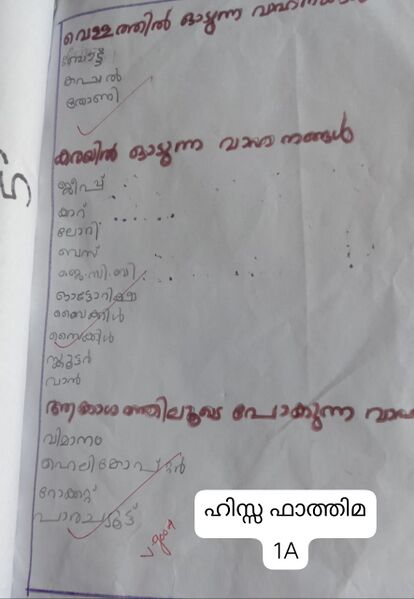 വെള്ളത്തിൽ ഓടുന്ന
ബോട്ട്
കപ്പൽ
തോണി
കരയിൽ ഓടുന്ന വാഹനങ്ങൾ
ജീപ്പ്
കാറ്
ലോറി
ബസ്
ജെ.സി.ബി
ഓട്ടോറിക്ഷ
ബൈക്കിൾ
സൈക്കിൾ
സ്കൂട്ടർ
വാൻ
ആകാശത്തിലൂടെ പോകുന്ന
വിമാനം
ഹെലികോപ്റ്റർ
റോക്കറ്റ്
പാരചടൂട്ട്
good
ഹിസ്സ ഫാത്തിമ
1A